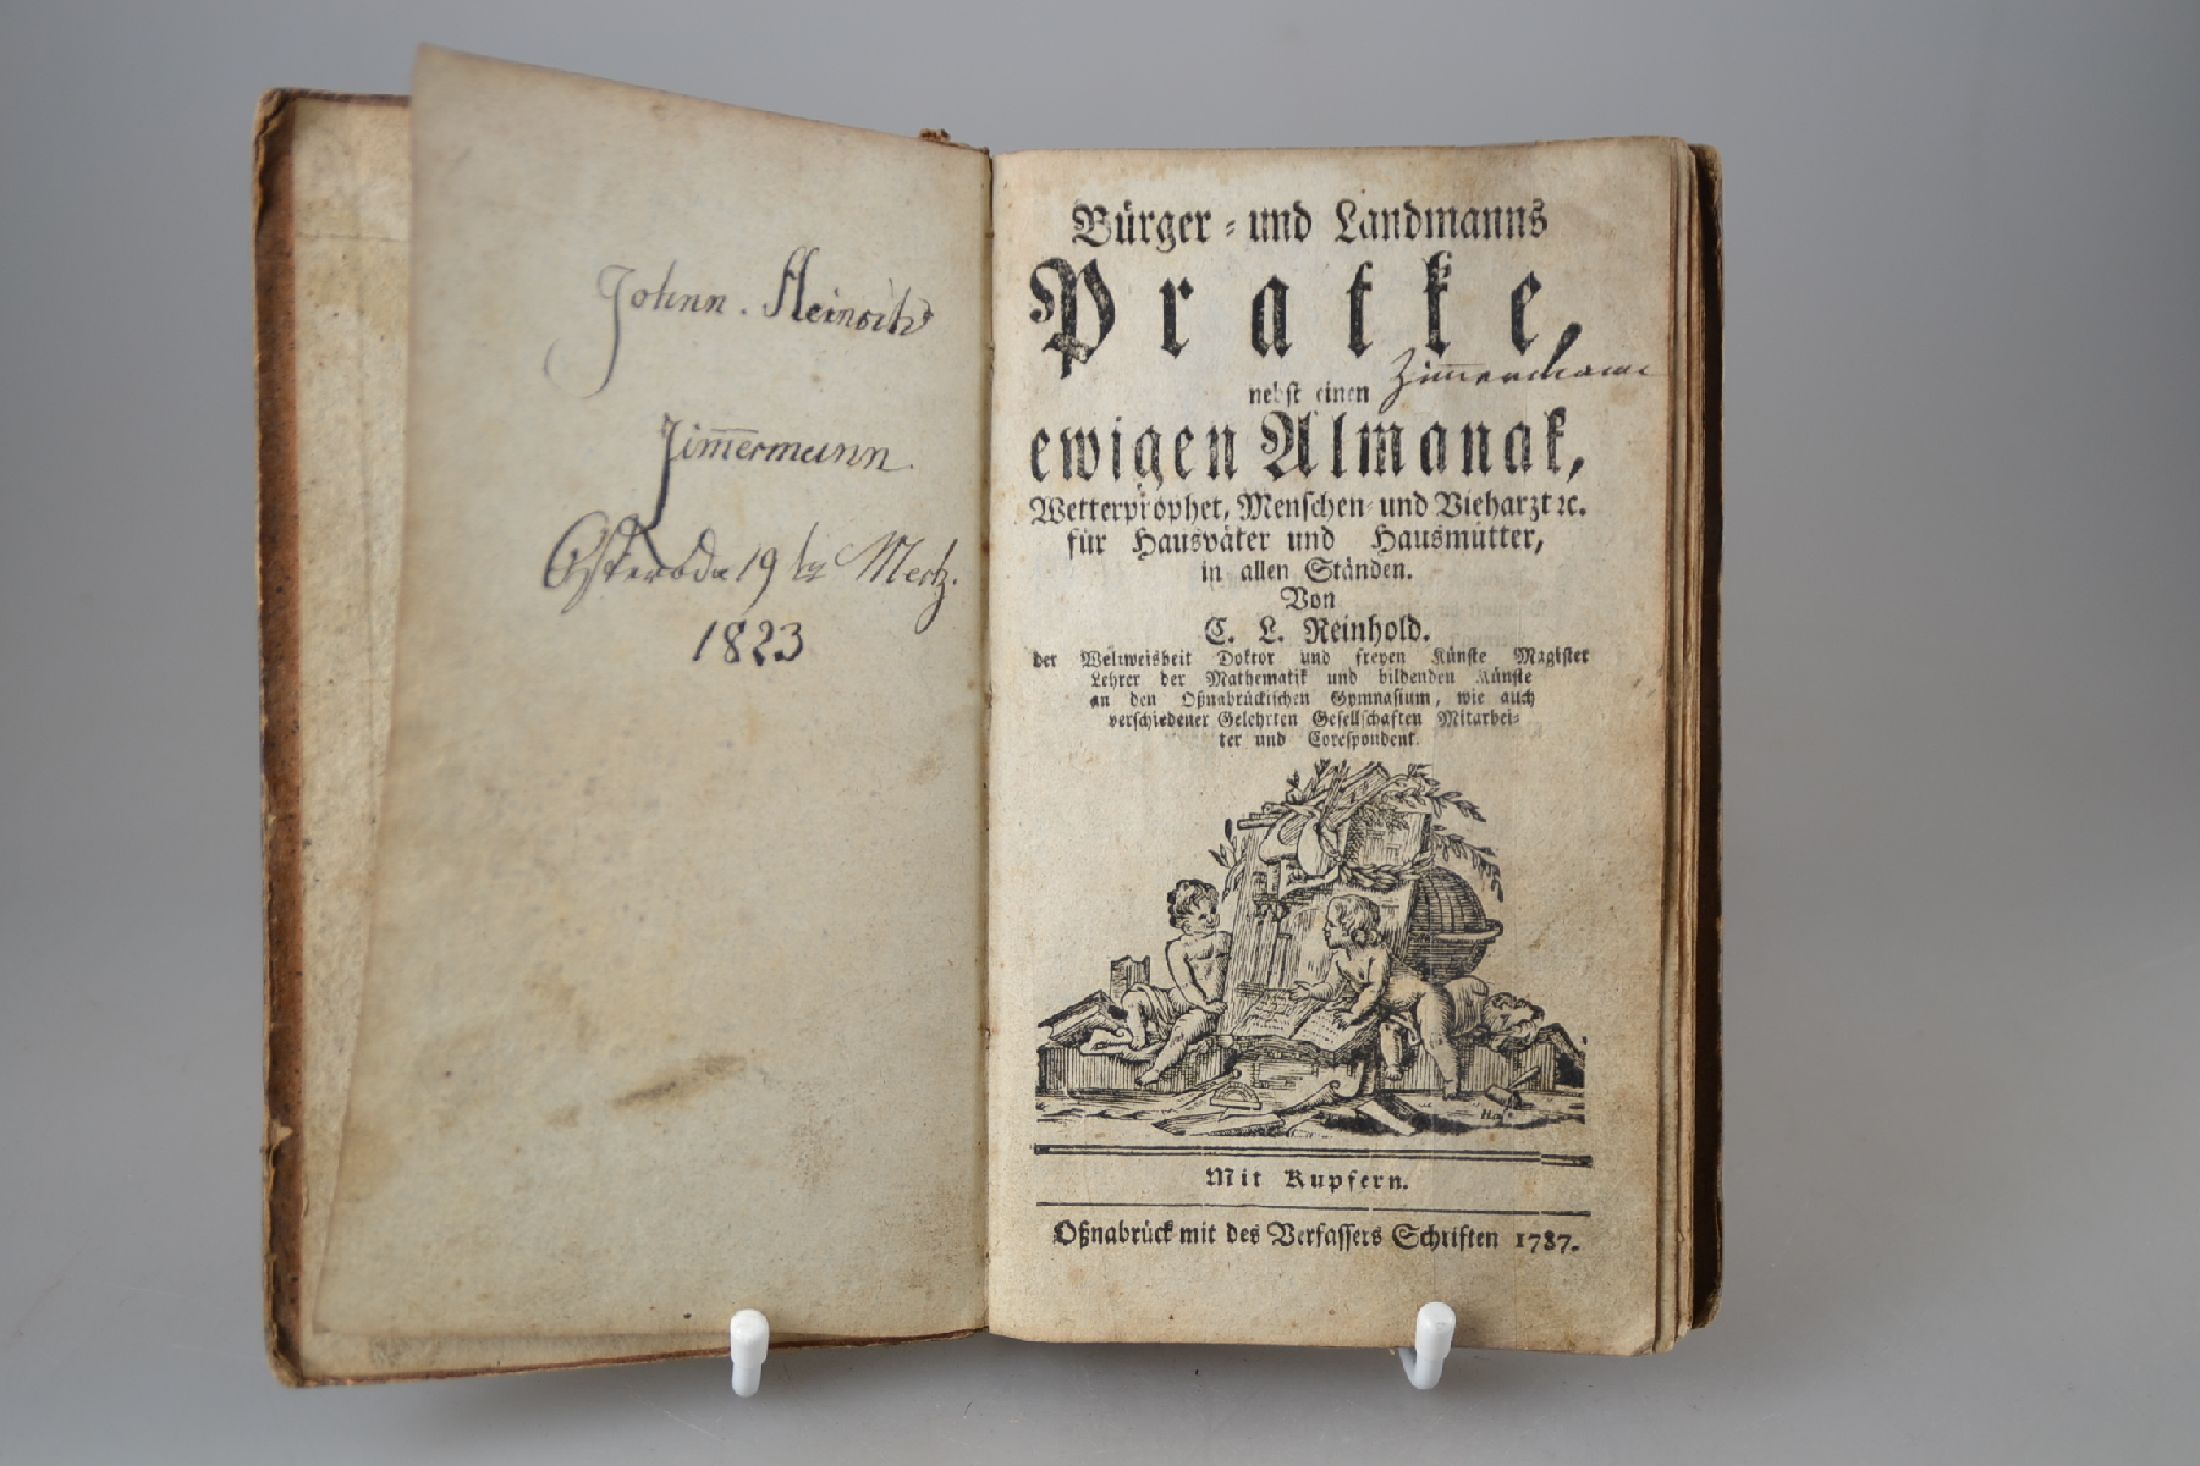 Johnn. Heinrich
Zim̅ermann.
Osterode 19 Mertz.
1823
Bürger- und Landmanns
Pratke,
Zim̅ermann
nebst einen
ewigen Almanak,
Wetterprophet, Menschen- und Vieharzt ꝛc.
für Hausväter und Hausmütter,
in allen Ständen.
Von
C. L. Reinhold.
der Weltweisheit Doktor und freyen Künste Magister
Lehrer der Mathematik und bildenden Künste
an den Oßnabrückischen Gymnasium, wie auch
verschiedener Gelehrten Gesellschaften Mitarbei-
ter und Corespondent.
Mit Kupfern.
Oßnabrück mit des Verfassers Schriften 1787.